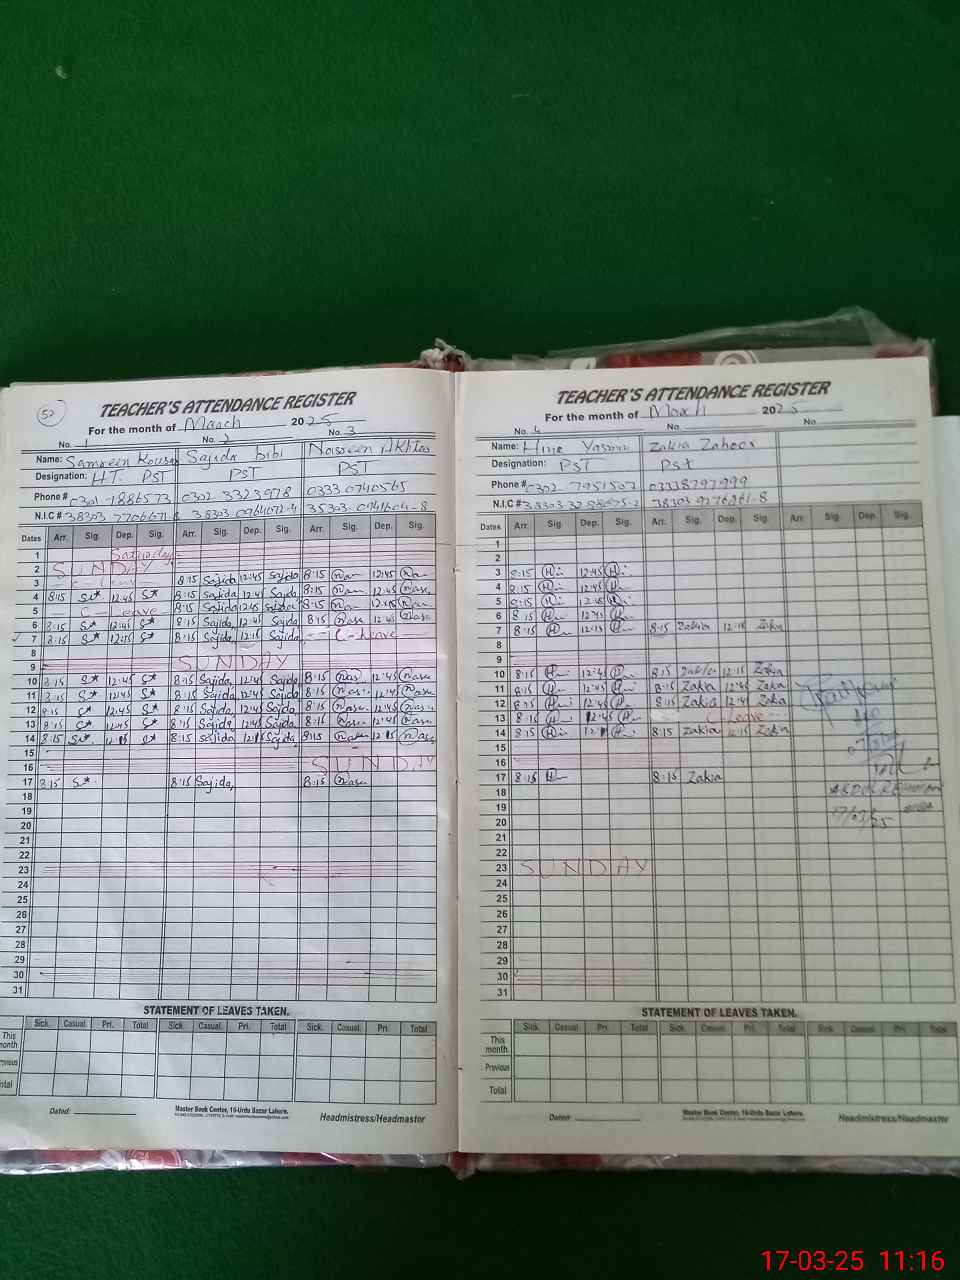 52
TEACHER'S ATTENDANCE REGISTER
For the month of March 2025
No. 1 No. 2 No. 3
Name: Samreen Kousar Sajida Bibi Nasreen Akhtar
Designation: H.T. PST PST PST
Phone # 0301-1886573 0302 3323978 0333.0740565
N.I.C #
Dates Arr. Sig. Dep. Sig. Arr. Sig. Dep. Sig. Arr. Sig. Dep. Sig.
1 Saturday
2 SUNDAY
3 8:15 Sajida 12:45 Sajida 8:15 12:45
4 8:15 S* 12:45 S* 8:15 Sajida 12:45 Sajida 8:15 12:45
5 C - Leave 8:15 Sajida 12:45 Sajida 8:15 12:45
6 8:15 S* 12:45 S* 8:15 Sajida 12:45 Sajida 8:15 12:45
7 8:15 S* 12:15 S* 8:15 Sajida 12:15 Sajida C-Leave
8
9 SUNDAY
10 8:15 S* 12:45 S* 8:15 Sajida 12:45 Sajida 8:15 12:45
11 8:15 S* 12:45 S* 8:15 Sajida 12:45 Sajida 8:15 12:45
12 8:15 S* 12:45 S* 8:15 Sajida 12:45 Sajida 8:15 12:45
13 8:15 S* 12:45 S* 8:15 Sajida 12:45 Sajida 8:15 12:45
14 8:15 S* 12:15 S* 8:15 Sajida 12:15 Sajida 8:15 12:15
15
16 SUNDAY
17 8:15 S* 8:15 Sajida 8:15
18
19
20
21
22
23
24
25
26
27
28
29
30
31
STATEMENT OF LEAVES TAKEN.
Sick. Casual. Pri. Total Sick. Casual. Pri. Total Sick. Casual. Pri. Total
This month.
Previous
Total
Dated: Master Book Center, 16-Urdu Bazar Lahore. Headmistress/Headmaster
TEACHER'S ATTENDANCE REGISTER
For the month of March 2025
No. 4 No. No
Name: Hina Yasmin Zakia Zaheer
Designation: PST Pst
Phone # 0302 7951507 03338797999
N.I.C #
Dates Arr. Sig. Dep. Sig. Arr. Sig. Dep. Sig. Arr. Sig. Dep. Sig.
1
2
3 8:15 12:45
4 8:15 12:45
5 8:15 12:45
6 8:15 12:45
7 8:15 12:15 8:15 Zakia 12:15 Zakia
8
9
10 8:15 12:45 8:15 Zakia 12:15 Zakia
11 8:15 12:45 8:15 Zakia 12:45 Zakia
12 8:15 12:45 8:15 Zakia 12:45 Zakia
13 8:15 12:45 Leave
14 8:15 8:15 Zakia 12:15 Zakia
15
16
17 8:15 8:15 Zakia
18
19 17/03/25
20
21
22
23 SUNDAY
24
25
26
27
28
29
30
31
STATEMENT OF LEAVES TAKEN.
Sick. Casual. Pri. Total Sick. Casual. Pri. Total Sick. Casual. Pri. Total
This month.
Previous
Total
Dated: Master Book Center, 16-Urdu Bazar Lahore. Headmistress/Headmaster
17-03-25 11:16